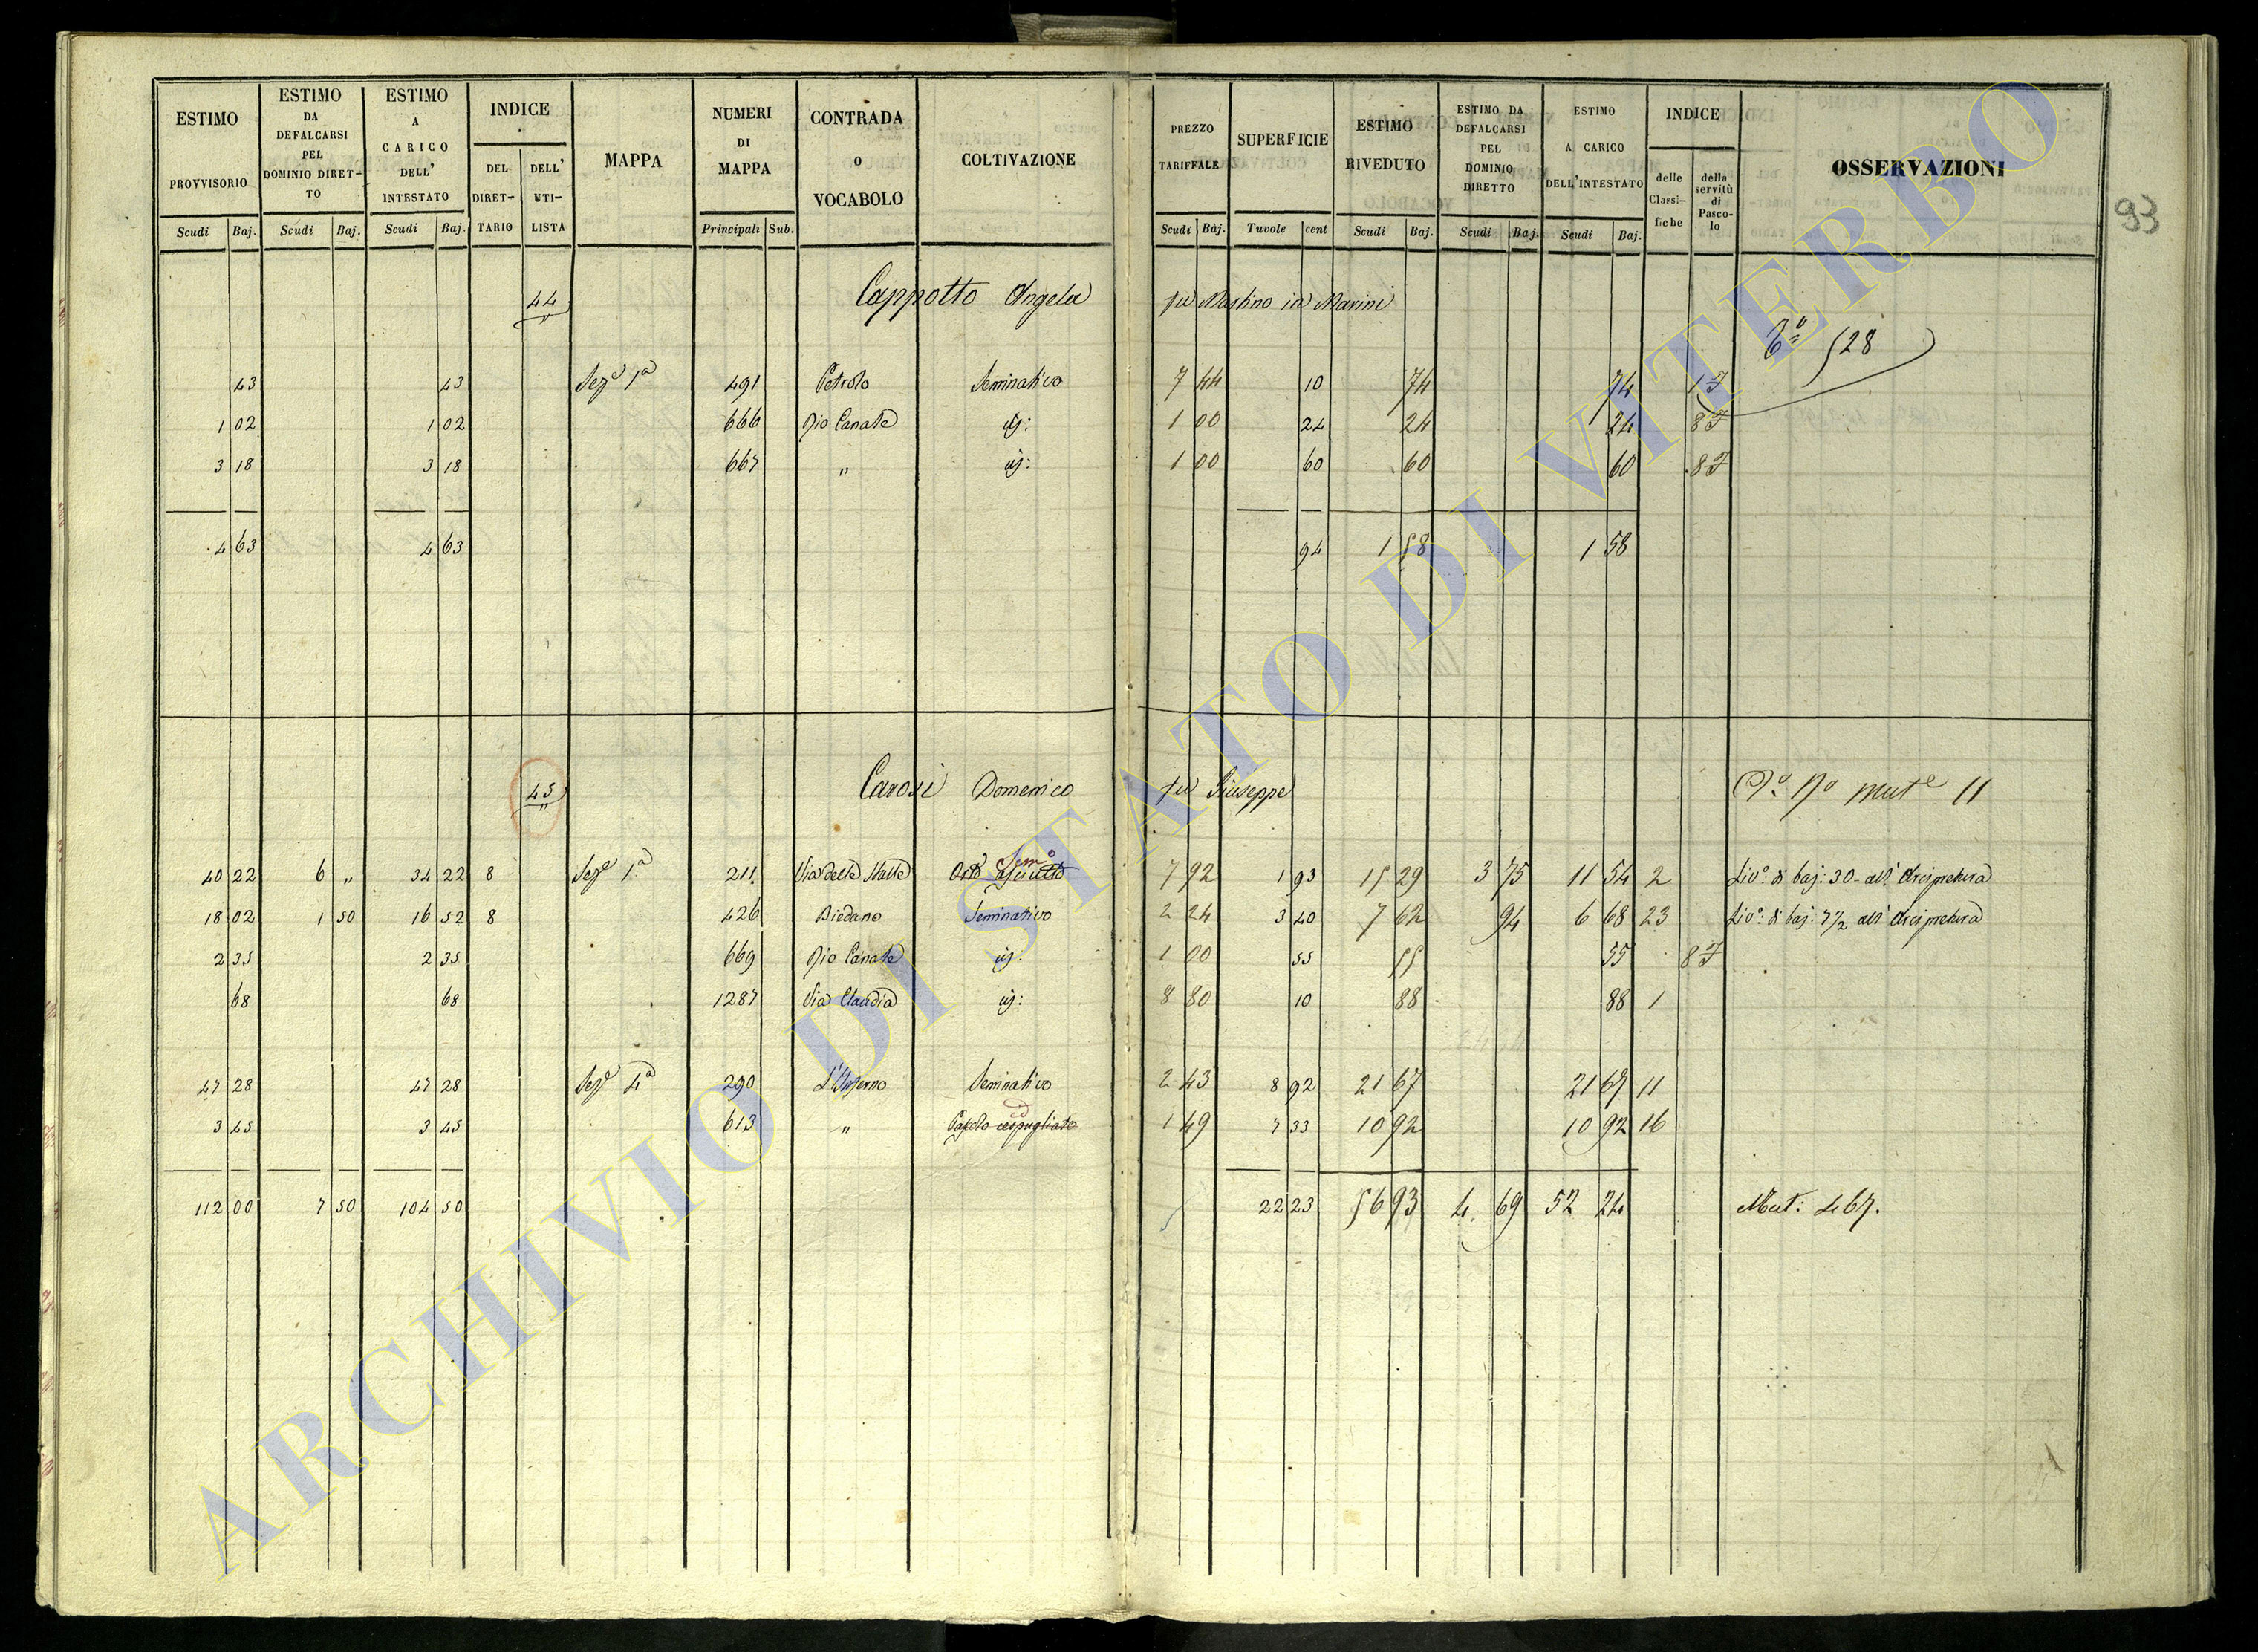 ESTIMO PROVVISORIO | ESTIMO DA DEFALCARSI PEL DOMINIO DIRETTO | ESTIMO A CARICO DELL' INTESTATO | INDICE | MAPPA | NUMERI DI MAPPA | CONTRADA o VOCABOLO | COLTIVAZIONE | PREZZO TARIFFALE | SUPERFICIE | ESTIMO RIVEDUTO | ESTIMO DA DEFALCARSI PEL DOMINIO DIRETTO | ESTIMO A CARICO DELL'INTESTATO | INDICE | OSSERVAZIONI
DEL DIRETTARIO | DELL' UTILISTA | delle Classifiche | della servitù di Pascolo
Scudi Baj. | Scudi Baj. | Scudi Baj. | Principali Sub. | Scudi Baj. | Tavole cent | Scudi Baj. | Scudi Baj. | Scudi Baj.
93
44 Cappotto Angela fu Mastino in Marini
528
43 | 43 | Sez.e 1a | 491 | Petrolo | Seminativo | 7 44 | 10 | 74 | 74 | 1 F
1 02 | 1 02 | 666 | Rio Canale | id: | 1 00 | 24 | 24 | 24 | 8 F
3 18 | 3 18 | 667 | " | id: | 1 00 | 60 | 60 | 60 | 8 F
4 63 | 4 63 | 94 | 1 58 | 1 58
45 Carosi Domenico fu Giuseppe 11
40 22 | 6 " | 34 22 | 8 | Sez.e 1a | 211 | Via della Statta | Sem.o | 7 92 | 1 93 | 15 29 | 3 75 | 11 54 | 2 | Liv.o di baj: 30 - all' Arcipretura
18 02 | 1 50 | 16 52 | 8 | 426 | Biedano | Seminativo | 2 24 | 3 40 | 7 62 | 94 | 6 68 | 23 | Liv.o di baj: 7 1/2 all' Arcipretura
2 35 | 2 35 | 669 | Rio Canale | id: | 1 00 | 55 | 55 | 55 | 8 F
68 | 68 | 1287 | Via Claudia | id: | 8 80 | 10 | 88 | 88 | 1
47 28 | 47 28 | Sez.e 4a | 290 | L'Inferno | Seminativo | 2 43 | 8 92 | 21 67 | 21 67 | 11
3 45 | 3 45 | 613 | " | Pascolo cespugliato | 1 49 | 7 33 | 10 92 | 10 92 | 16
112 00 | 7 50 | 104 50 | 22 23 | 56 93 | 4 69 | 52 24 | Mut: 467.
ARCHIVIO DI STATO DI VITERBO